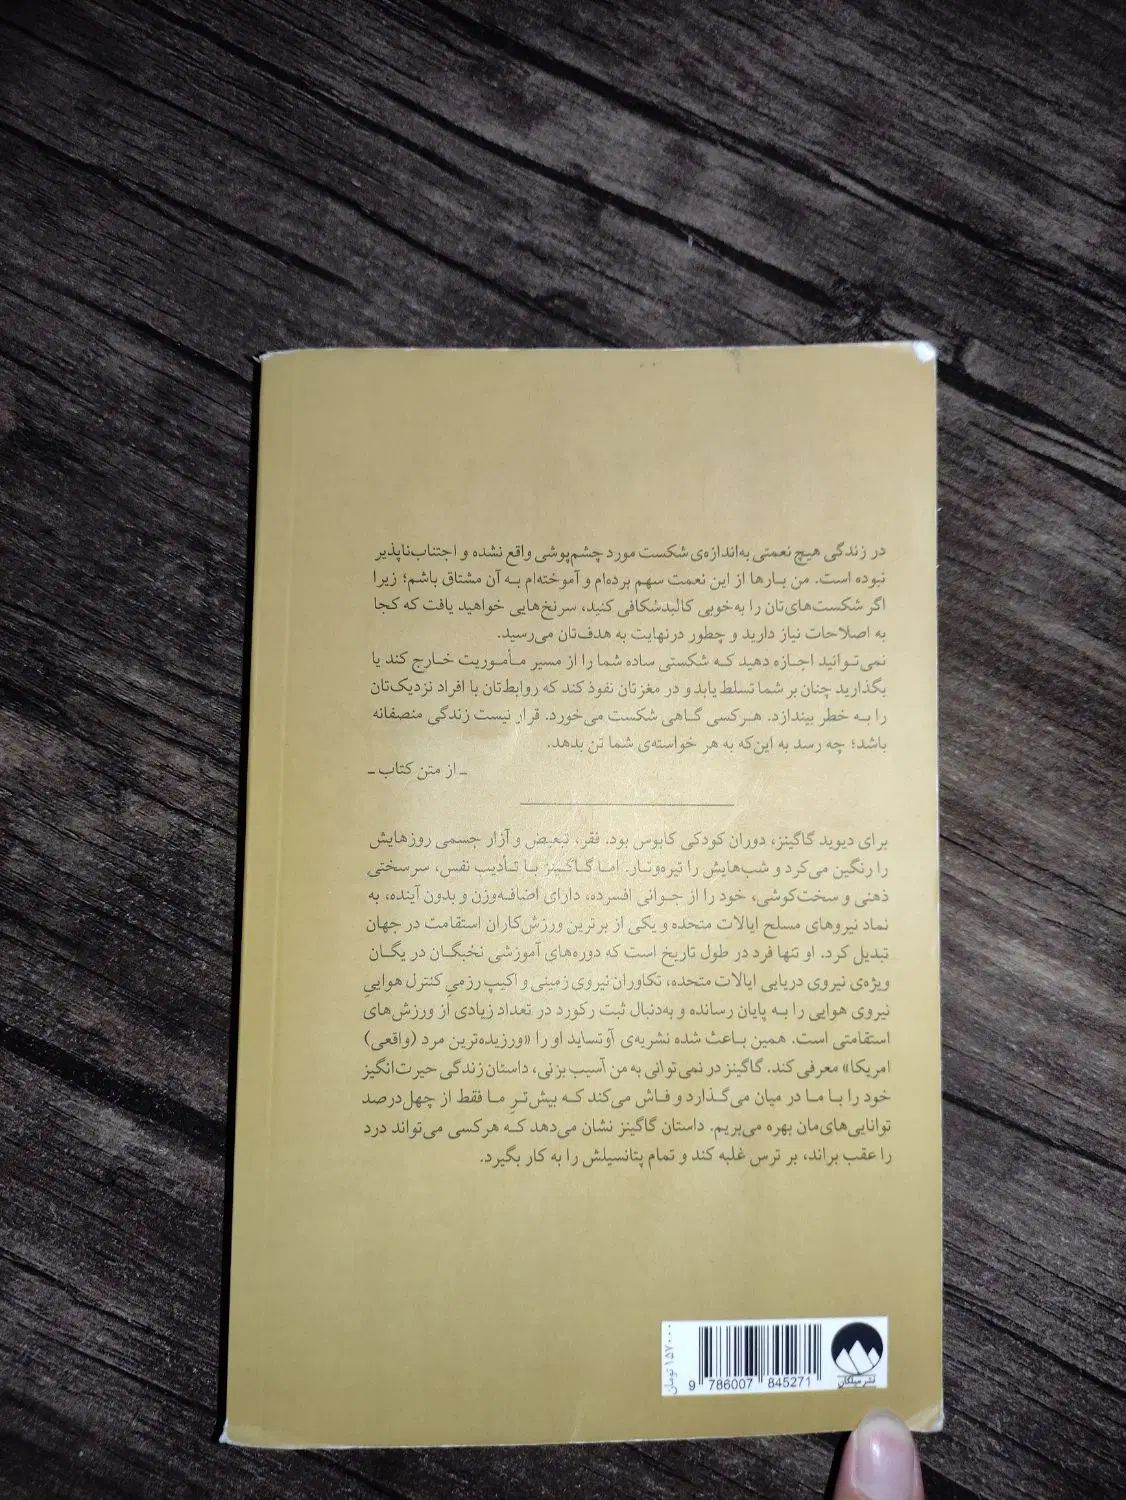 در زندگی هیچ نعمتی به‌اندازه‌ی شکست مورد چشم‌پوشی واقع نشده و اجتناب‌ناپذیر
نبوده است. من بارها از این نعمت سهم برده‌ام و آموخته‌ام به آن مشتاق باشم؛ زیرا
اگر شکست‌های‌تان را به‌خوبی کالبدشکافی کنید، سرنخ‌هایی خواهید یافت که کجا
به اصلاحات نیاز دارید و چطور درنهایت به هدف‌تان می‌رسید.
نمی‌توانید اجازه دهید که شکستی ساده شما را از مسیر مأموریت خارج کند یا
بگذارید چنان بر شما تسلط یابد و در مغزتان نفوذ کند که روابط‌تان با افراد نزدیک‌تان
را به خطر بیندازد. هرکسی گاهی شکست می‌خورد. قرار نیست زندگی منصفانه
باشد؛ چه رسد به این‌که به هر خواسته‌ی شما تن بدهد.
ـ از متن کتاب ـ
برای دیوید گاگینز، دوران کودکی کابوس بود. فقر، تبعیض و آزار جسمی روزهایش
را رنگین می‌کرد و شب‌هایش را تیره‌وتار. اما گاگینز با تأدیب نفس، سرسختیِ
ذهنی و سخت‌کوشی، خود را از جوانی افسرده، دارای اضافه‌وزن و بدون آینده، به
نماد نیروهای مسلح ایالات متحده و یکی از برترین ورزش‌کاران استقامت در جهان
تبدیل کرد. او تنها فرد در طول تاریخ است که دوره‌های آموزشی نخبگان در یگان
ویژه‌ی نیروی دریایی ایالات متحده، تکاوران نیروی زمینی و اکیپ رزمیِ کنترل هواییِ
نیروی هوایی را به پایان رسانده و به‌دنبال ثبت رکورد در تعداد زیادی از ورزش‌های
استقامتی است. همین باعث شده نشریه‌ی آوتساید او را «ورزیده‌ترین مرد (واقعی)
امریکا» معرفی کند. گاگینز در نمی‌توانی به من آسیب بزنی، داستان زندگی حیرت‌انگیز
خود را با ما در میان می‌گذارد و فاش می‌کند که بیش‌ترِ ما فقط از چهل‌درصد
توانایی‌های‌مان بهره می‌بریم. داستان گاگینز نشان می‌دهد که هرکسی می‌تواند درد
را عقب براند، بر ترس غلبه کند و تمام پتانسیلش را به کار بگیرد.
۱۵۷۰۰۰ تومان
9 786007 845271
نشر میلکان